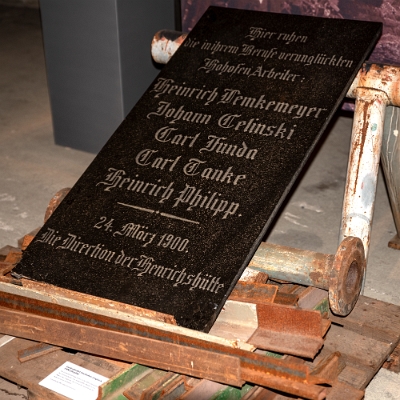 Hier ruhen
die in ihrem Berufe verunglückten
Hohofen Arbeiter:
Heinrich Demkemeyer
Johann Celinski
Carl Funda
Carl Tanke
Heinrich Philipp.
24. März 1900.
Die Direction der Henrichshütte